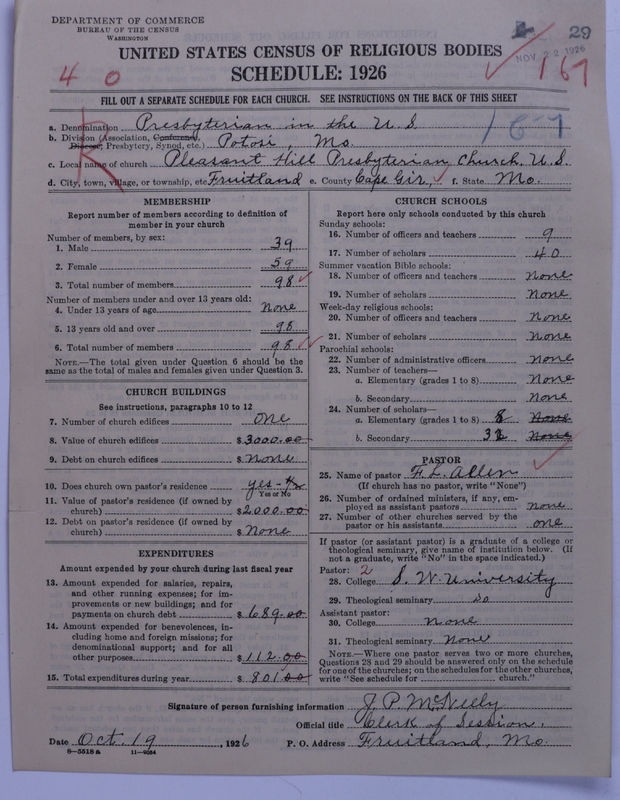 DEPARTMENT OF COMMERCE
BUREAU OF THE CENSUS
WASHINGTON
29
NOV 22 1926
UNITED STATES CENSUS OF RELIGIOUS BODIES
SCHEDULE: 1926
4 0
167
FILL OUT A SEPARATE SCHEDULE FOR EACH CHURCH. SEE INSTRUCTIONS ON THE BACK OF THIS SHEET
a. Denomination Presbyterian in the U.S. 167
b. Division (Association, Conference, Diocese, Presbytery, Synod, etc.) Potosi, Mo.
c. Local name of church Pleasant Hill Presbyterian Church, U.S.
d. City, town, village, or township, etc. Fruitland e. County Cape Gir, f. State Mo.
MEMBERSHIP
Report number of members according to definition of
member in your church
Number of members, by sex:
1. Male 39
2. Female 59
3. Total number of members 98
Number of members under and over 13 years old:
4. Under 13 years of age None
5. 13 years old and over 98
6. Total number of members 98
NOTE.—The total given under Question 6 should be the
same as the total of males and females given under Question 3.
CHURCH BUILDINGS
See instructions, paragraphs 10 to 12
7. Number of church edifices one
8. Value of church edifices $3000.00
9. Debt on church edifices $ None
10. Does church own pastor's residence yes - 1/2
Yes or No
11. Value of pastor's residence (if owned by
church) $2000.00
12. Debt on pastor's residence (if owned by
church) $ None
EXPENDITURES
Amount expended by your church during last fiscal year
13. Amount expended for salaries, repairs,
and other running expenses; for im-
provements or new buildings; and for
payments on church debt $689.00
14. Amount expended for benevolences, in-
cluding home and foreign missions; for
denominational support; and for all
other purposes $112.00
15. Total expenditures during year $801.00
CHURCH SCHOOLS
Report here only schools conducted by this church
Sunday schools:
16. Number of officers and teachers 9
17. Number of scholars 40
Summer vacation Bible schools:
18. Number of officers and teachers None
19. Number of scholars None
Week-day religious schools:
20. Number of officers and teachers None
21. Number of scholars None
Parochial schools:
22. Number of administrative officers None
23. Number of teachers—
a. Elementary (grades 1 to 8) None
b. Secondary None
24. Number of scholars—
a. Elementary (grades 1 to 8) 8 None
b. Secondary 32 None
PASTOR
25. Name of pastor F. L. Allen
(If church has no pastor, write "None")
26. Number of ordained ministers, if any, em-
ployed as assistant pastors none
27. Number of other churches served by the
pastor or his assistants one
If pastor (or assistant pastor) is a graduate of a college or
theological seminary, give name of institution below. (If
not a graduate, write "No" in the space indicated.)
Pastor: 2
28. College S. W. University
29. Theological seminary do
Assistant pastor:
30. College None
31. Theological seminary None
NOTE.—Where one pastor serves two or more churches,
Questions 28 and 29 should be answered only on the schedule
for one of the churches; on the schedules for the other churches,
write "See schedule for church."
Signature of person furnishing information J. P. McNeely
Official title Clerk of Session,
Date Oct. 19, 1926 P. O. Address Fruitland, Mo.
8—5518a 11—9064